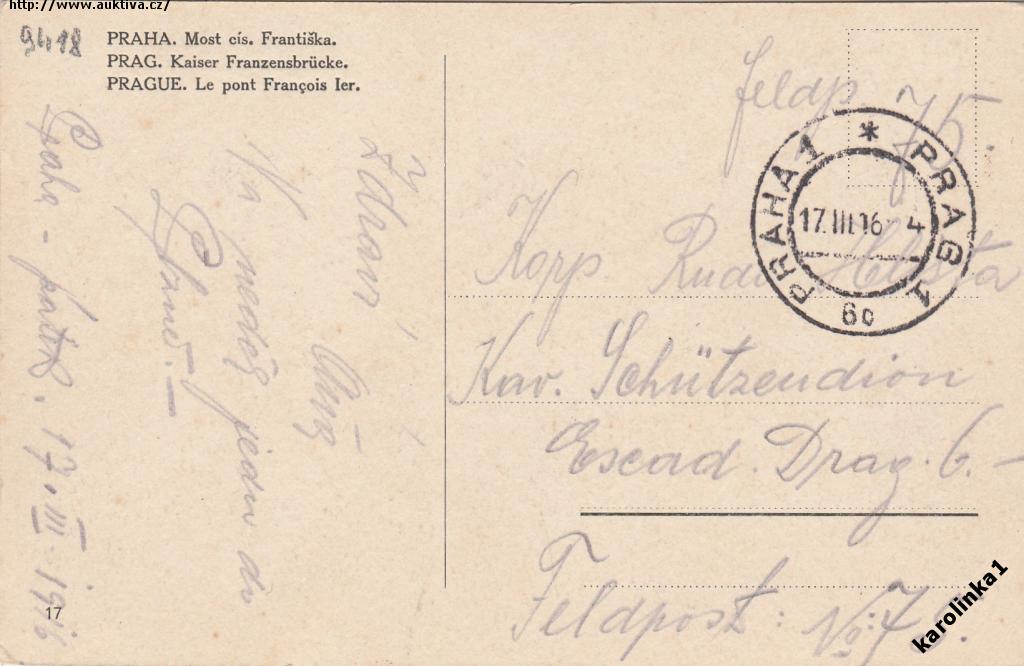 http://www.auktiva.cz/
9418
PRAHA. Most cís. Františka.
PRAG. Kaiser Franzensbrücke.
PRAGUE. Le pont François Ier.
Praha - pátek. 17. III. 1916
V neděli jedu do
Zdraví
feldp. 75.
PRAHA 1 * PRAG 1
17.III.16 - 4
6c
Kopp.
Kav. Schützendion
Escad. Drag. 6. -
Feldpost: No: 75.
17
karolinka1